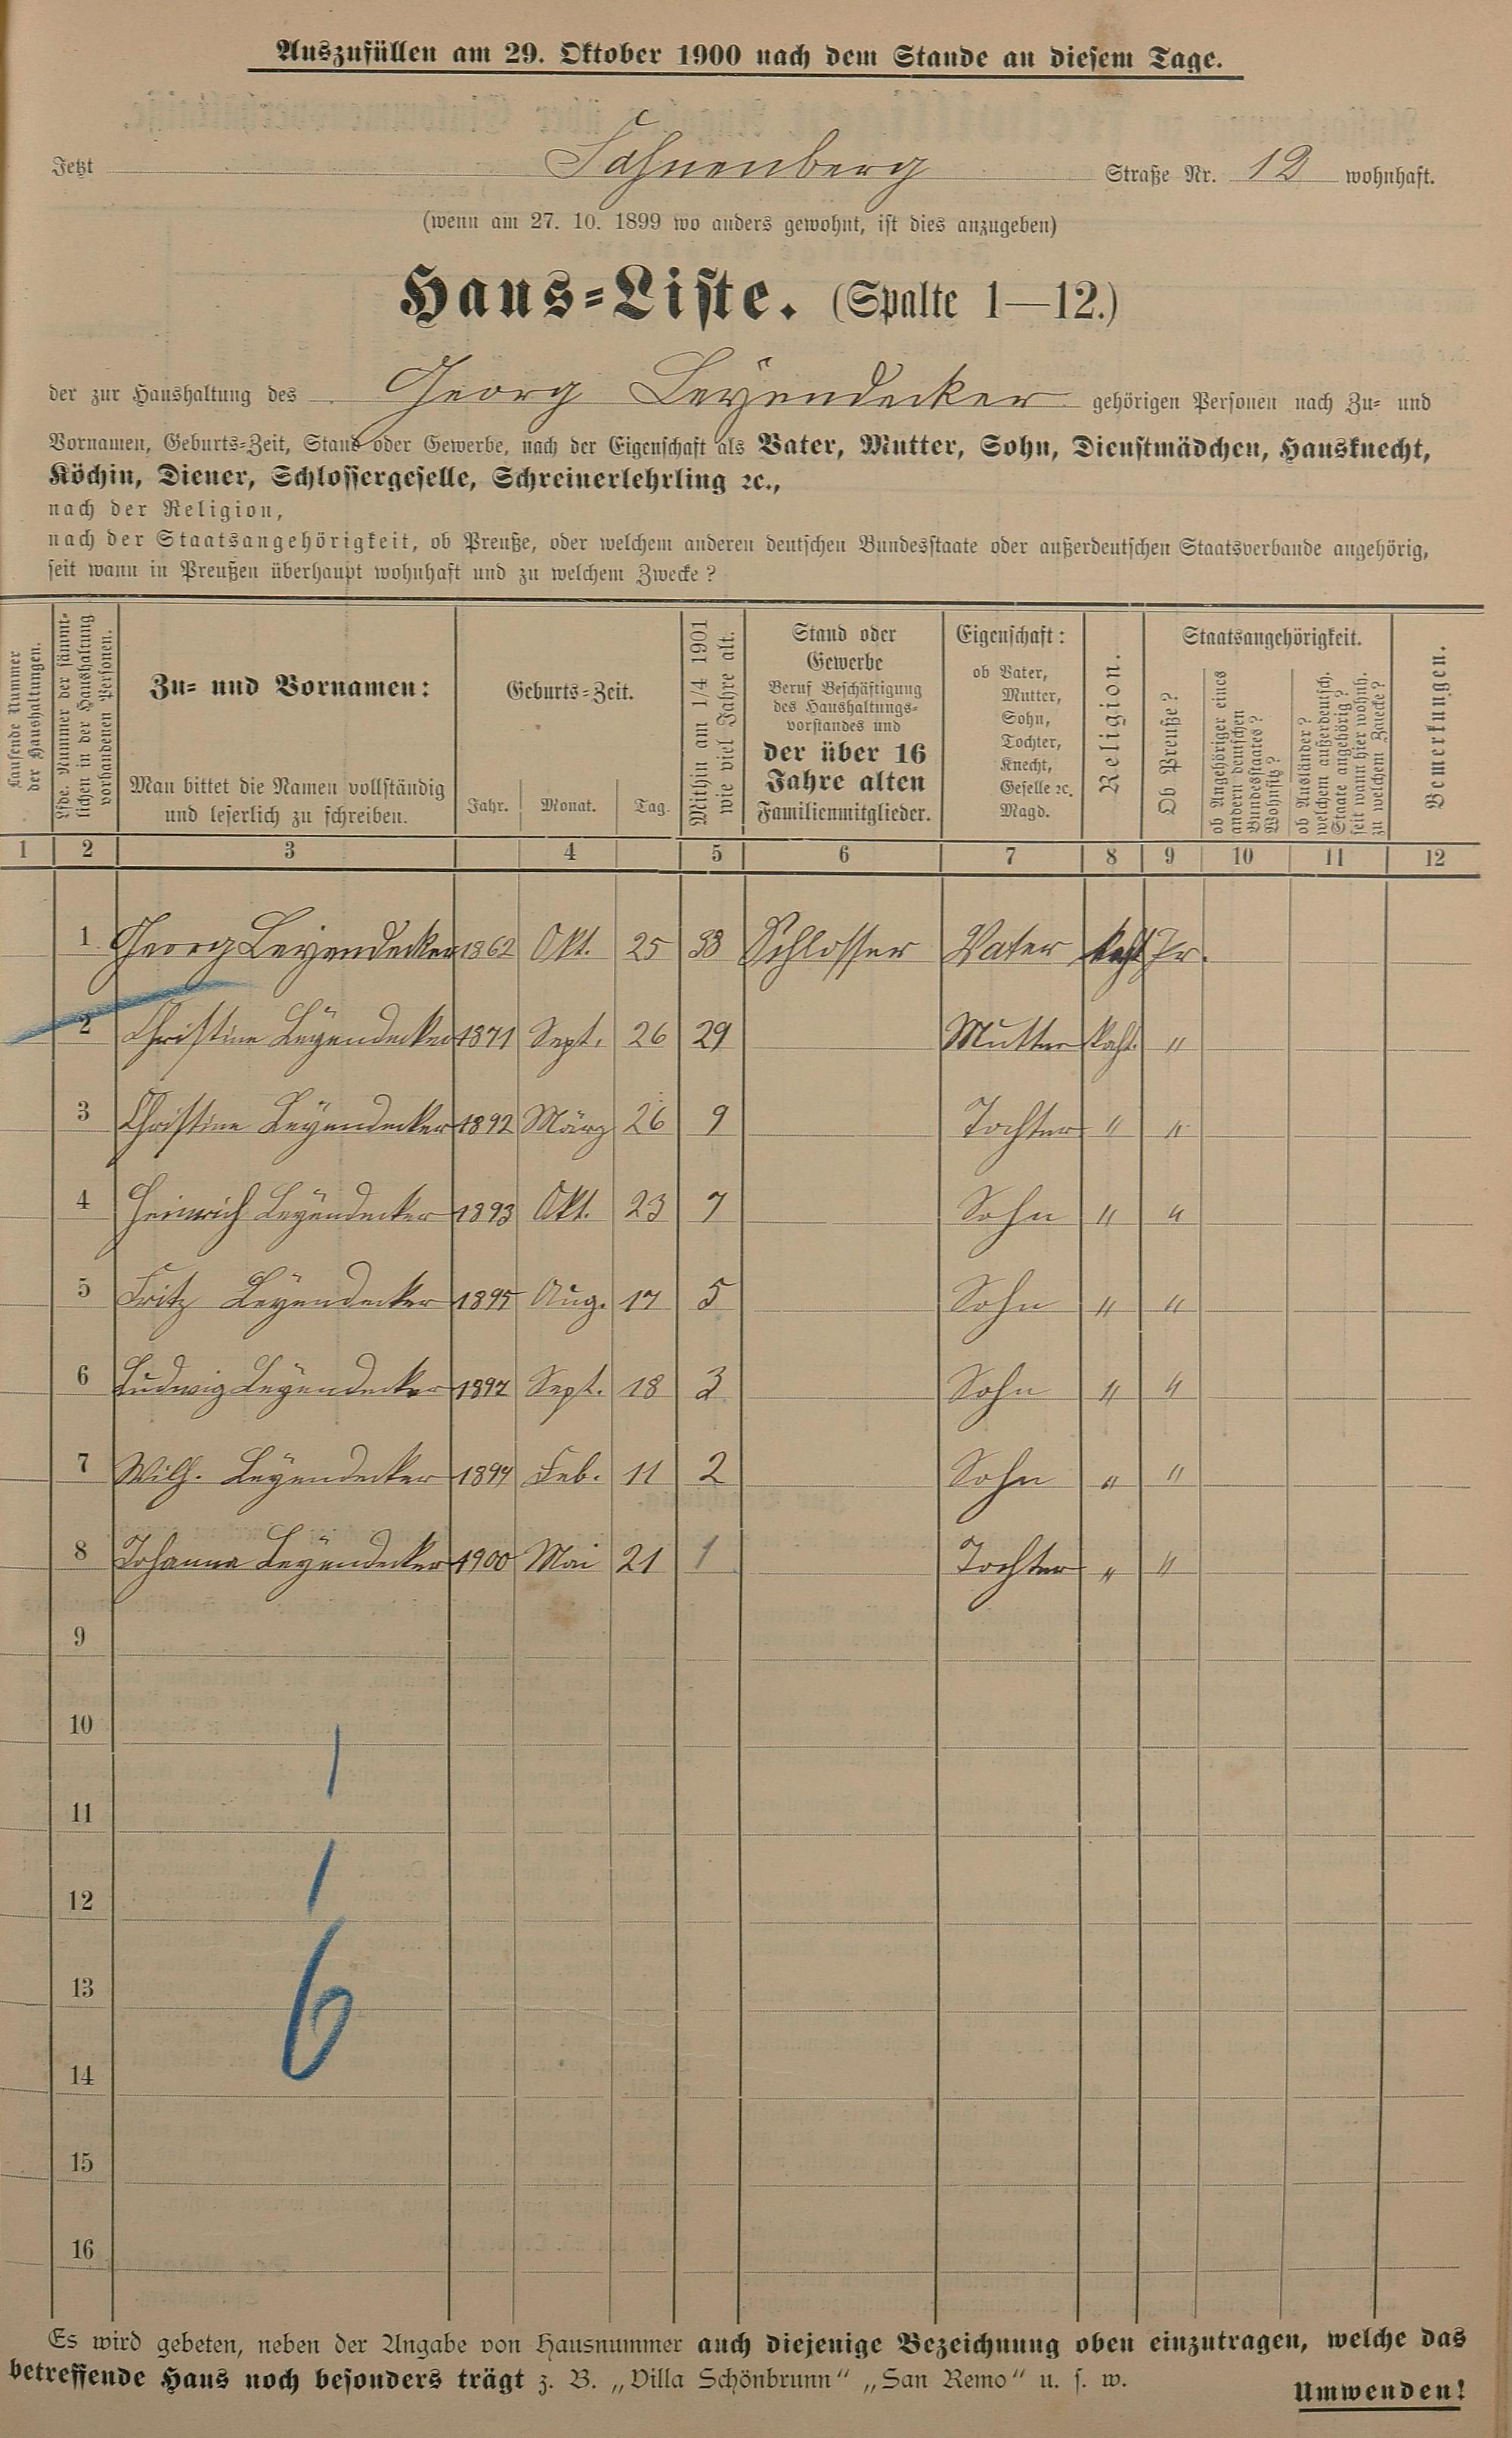 Auszufüllen am 29. Oktober 1900 nach dem Stande an diesem Tage.
Jetzt Fahnenberg Straße Nr. 12 wohnhaft.
(wenn am 27. 10. 1899 wo anders gewohnt, ist dies anzugeben)
Haus=Liste. (Spalte 1—12.)
der zur Haushaltung des Georg Leyendecker gehörigen Personen nach Zu= und
Vornamen, Geburts=Zeit, Stand oder Gewerbe, nach der Eigenschaft als Vater, Mutter, Sohn, Dienstmädchen, Hausknecht,
Köchin, Diener, Schlossergeselle, Schreinerlehrling ꝛc.,
nach der Religion,
nach der Staatsangehörigkeit, ob Preuße, oder welchem anderen deutschen Bundesstaate oder außerdeutschen Staatsverbande angehörig,
seit wann in Preußen überhaupt wohnhaft und zu welchem Zwecke?
Laufende Nummer
der Haushaltungen.
Lfde. Nummer der sämmt-
lichen in der Haushaltung
vorhandenen Personen.
Zu= und Vornamen:
Man bittet die Namen vollständig
und leserlich zu schreiben.
Geburts=Zeit.
Jahr. Monat. Tag.
Mithin am 1/4 1901
wie viel Jahre alt.
Stand oder
Gewerbe
Beruf Beschäftigung
des Haushaltungs-
vorstandes und
der über 16
Jahre alten
Familienmitglieder.
Eigenschaft:
ob Vater,
Mutter,
Sohn,
Tochter,
Knecht,
Geselle ꝛc.
Magd.
Religion.
Staatsangehörigkeit.
Ob Preuße?
ob Angehöriger eines
andern deutschen
Bundesstaates?
Wohnsitz?
ob Ausländer?
welchem außerdeutsch.
Staate angehörig?
seit wann hier wohnh.
zu welchem Zwecke?
Bemerkungen.
1 2 3 4 5 6 7 8 9 10 11 12
1 Georg Leyendecker 1862 Okt. 25 38 Schlosser Vater kath Pr.
2 Christine Leyendecker 1871 Sept. 26 29 Mutter kath. "
3 Christine Leyendecker 1892 März 26 9 Tochter " "
4 Heinrich Leyendecker 1893 Okt. 23 7 Sohn " "
5 Fritz Leyendecker 1895 Aug. 17 5 Sohn " "
6 Ludwig Leyendecker 1897 Sept. 18 3 Sohn " "
7 Wilh. Leyendecker 1899 Feb. 11 2 Sohn " "
8 Johanna Leyendecker 1900 Mai 21 1 Tochter " "
9
10
1
11
12
1
13
6
14
15
16
Es wird gebeten, neben der Angabe von Hausnummer auch diejenige Bezeichnung oben einzutragen, welche das
betreffende Haus noch besonders trägt z. B. „Villa Schönbrunn" „San Remo" u. s. w.
Umwenden!